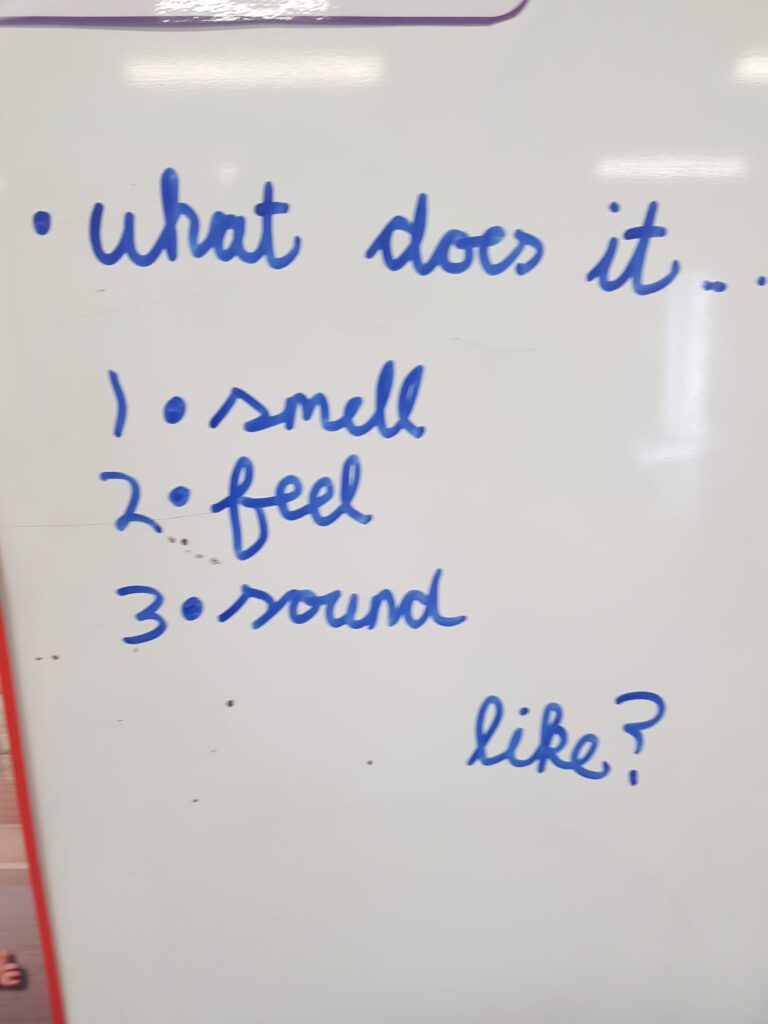 • what does it...
1 • smell
2 • feel
3 • sound
like?